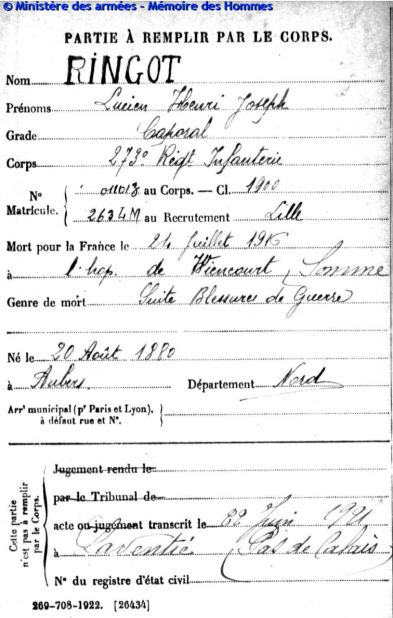 © Ministère des armées - Mémoire des Hommes
PARTIE À REMPLIR PAR LE CORPS.
Nom RINGOT
Prénoms Lucien Henri Joseph
Grade Caporal
Corps 273e Régt Infanterie
N° 011013 au Corps. — Cl. 1900
Matricule. 2634M au Recrutement Lille
Mort pour la France le 24 Juillet 1916
à l'hop. de Wiencourt (Somme
Genre de mort Suite Blessures de Guerre
Né le 20 Août 1880
à Aubers. Département Nord
Arrt municipal (pr Paris et Lyon),
à défaut rue et N°.
Cette partie
n'est pas à remplir
par le Corps.
Jugement rendu le
par le Tribunal de
acte ou jugement transcrit le 22 Juin 1921
à Laventie (Pas de Calais)
N° du registre d'état civil
269-708-1922. [26434]